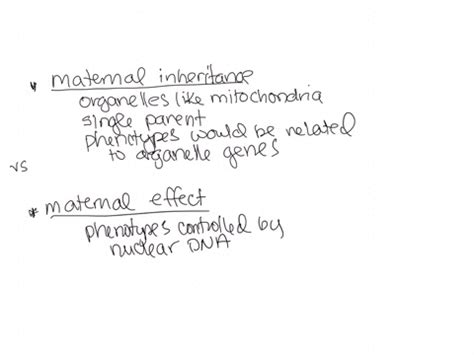 * maternal inheritance
organelles like mitochondria
single parent
phenotypes would be related
to organelle genes
vs
* maternal effect
phenotypes controlled by
nuclear DNA